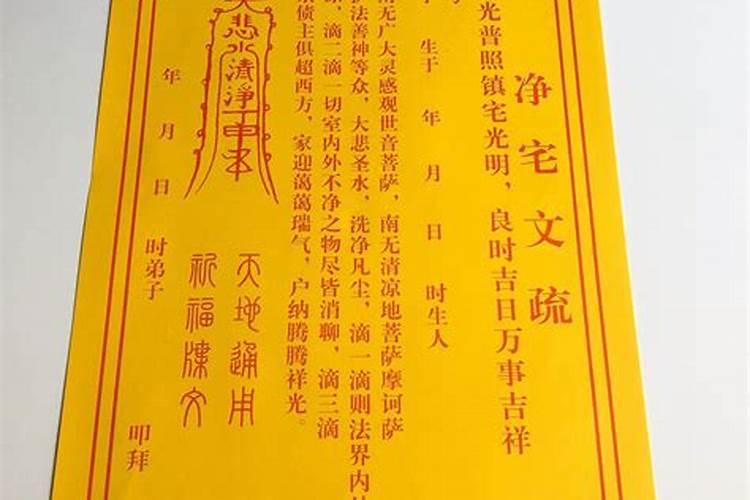 净宅文疏
光普照镇宅光明，良时吉日万事吉祥
生于 年 月 日 时生人
南无广大灵感观世音菩萨，南无清凉地菩萨摩诃萨
护法善神等众，大悲圣水，洗净凡尘，滴一滴则法界内
滴二滴一切室内外不净之物尽皆消聊，滴三滴
债主俱超西方，家迎蔼蔼瑞气，户纳腾腾祥光。
大悲水清净
天地通用
祈福牒文
年 月 日 时弟子 叩拜